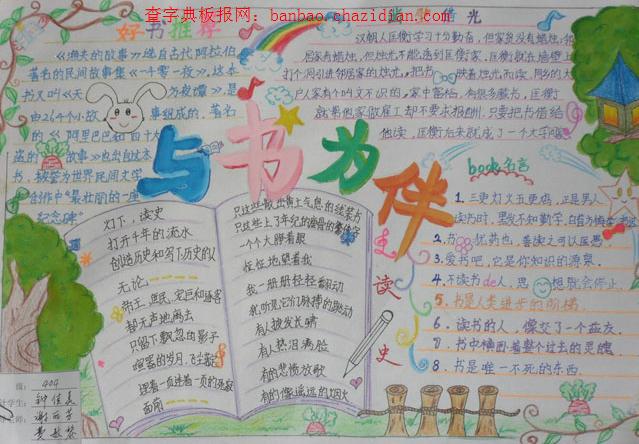 查字典板报网：banbao.chazidian.com
好书推荐
《渔夫的故事》选自古代阿拉伯
著名的民间故事集《一千零一夜》,这本
书又叫《天方夜谭》,是
由264个小故事组成的,著名
的《阿里巴巴和四十大
盗的故事》也出自这本
书,被誉为世界民间文学
创作中"最壮丽的一座
纪念碑"
凿壁借光
汉朝人匡衡学习十分勤奋,但家贫没有蜡烛,邻
居家有蜡烛,但烛光不能透到匡衡家,匡衡就在墙壁上
打个洞引进邻居家的烛光,把书
借着烛光而读,同乡的大
户人家有个叫文不识的,家中富裕,有很多藏书,匡衡
就帮他家做雇工却不要求报酬,只要把书借给
他读,匡衡后来就成了一个大学
与书为伴
灯下,读史
打开千年的流水
创造历史和写下历史的人
无论
帝王,
都无声地
只留下飘忽的影子
喧嚣的岁月
面前
只这些上了年纪的
一个个睁着眼
怔怔地望着我
我一册册轻轻翻动
就听见它们脉搏的跳动
有人披发长啸
有人热泪满脸
有的悲愤放歌
有的像遥远的烟火
读史
book名言
1.三更灯火五更鸡,正是男儿
读书时,黑发不知勤学早,白首方悔读书迟
2.书犹药也,善读之可以医愚
3.爱书吧,它是你知识的源泉.
4.不读书de人,思想就会停止.
5.书是人类进步的阶梯.
6.读书的人,像交了一个益友.
7.书中横卧着整个过去的灵魂
8.书是唯一不死的东西.
班:404
学生:钟佳